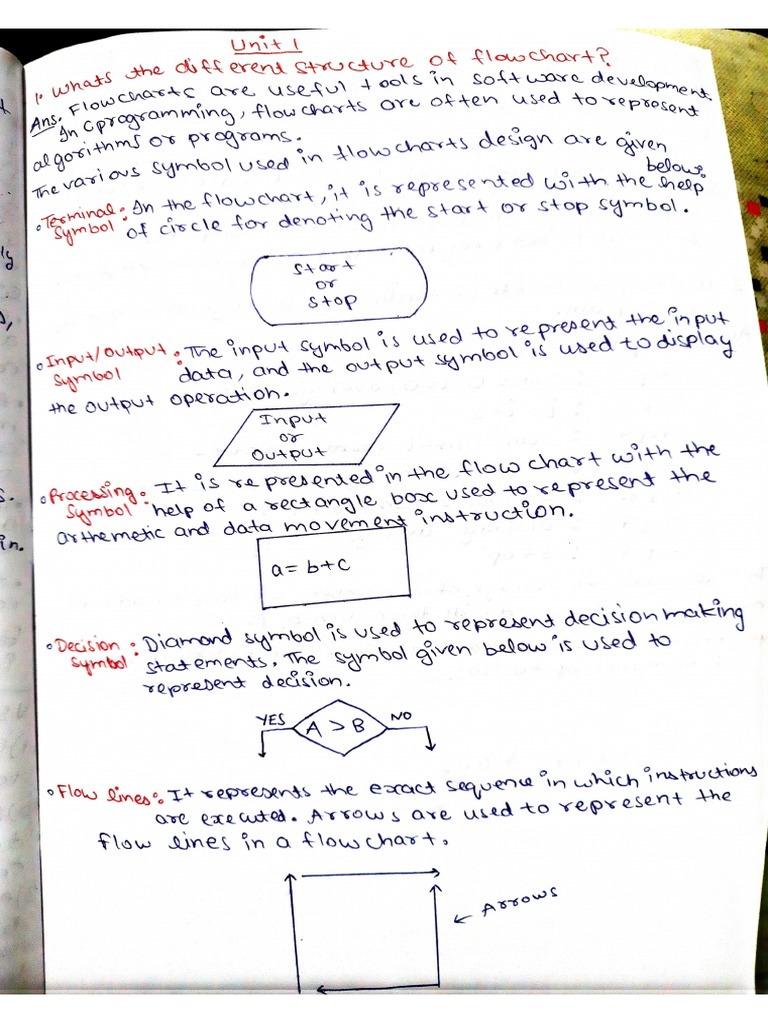 Unit 1
1. Whats the different structure of flowchart?
Ans. Flowcharts are useful tools in software development.
In Cprogramming, flowcharts are often used to represent
algorithms or programs.
The various symbol used in flowcharts design are given
below:
Terminal : In the flowchart, it is represented with the help
Symbol : of circle for denoting the start or stop symbol.
Start
or
Stop
Input/Output : The input symbol is used to represent the input
Symbol data, and the output symbol is used to display
the output operation.
Input
or
Output
Processing : It is represented in the flow chart with the
Symbol : help of a rectangle box used to represent the
arthemetic and data movement instruction.
a = b+c
Decision : Diamond symbol is used to represent decision making
Symbol : statements. The symbol given below is used to
represent decision.
YES A > B NO
Flow lines : It represents the exact sequence in which instructions
are executed. Arrows are used to represent the
flow lines in a flow chart.
Arrows
's
s.
in.